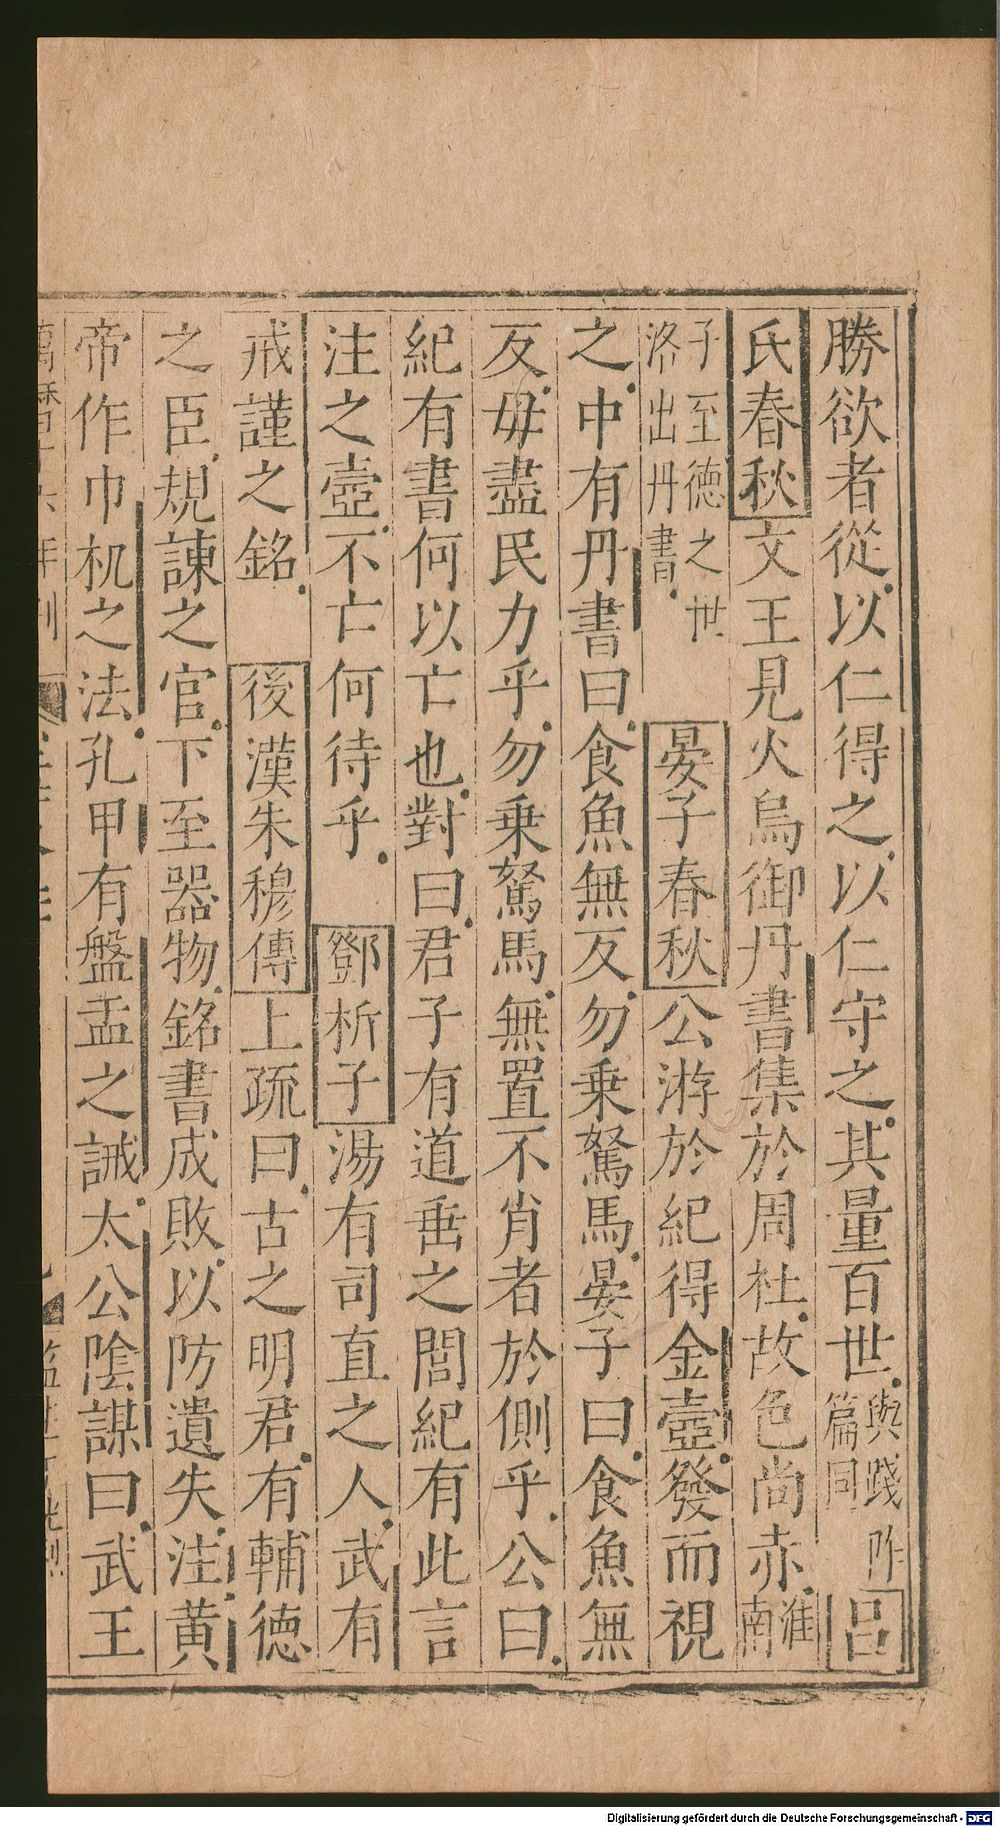 勝欲者從以仁得之以仁守之其量百世與踐阼篇同呂
氏春秋文王見火烏御丹書集於周社故色尚赤淮南
子至德之世洛出丹書晏子春秋公游於紀得金壺發而視
之中有丹書曰食魚無反勿乗駑馬晏子曰食魚無
反毋盡民力乎勿乗駑馬無置不肖者於側乎公曰
紀有書何以亡也對曰君子有道垂之閭紀有此言
注之壺不亡何待乎鄧析子湯有司直之人武有
戒謹之銘後漢朱穆傳上疏曰古之明君有輔德
之臣規諫之官下至器物銘書成敗以防遺失注黄
帝作巾机之法孔甲有盤盂之誡太公隂謀曰武王
Digitalisierung gefördert durch die Deutsche Forschungsgemeinschaft - DFG